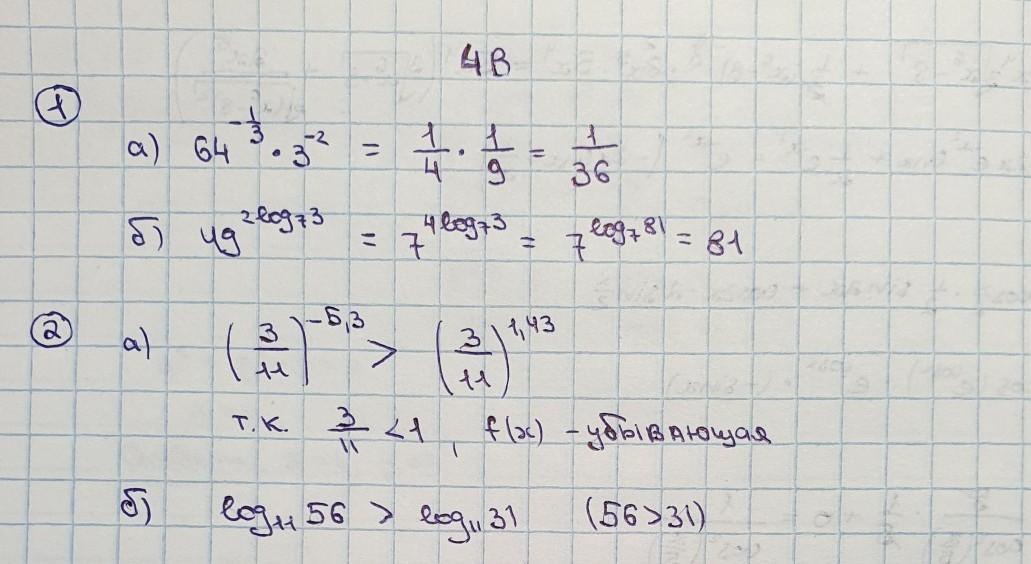 4В
① а) 64^{-1/3} · 3^{-2} = 1/4 · 1/9 = 1/36
б) 49^{2log_7 3} = 7^{4log_7 3} = 7^{log_7 81} = 81
② а) (3/11)^{-5,3} > (3/11)^{1,43}
т.к. 3/11 < 1, f(x) - убывающая
б) log_{11} 56 > log_{11} 31 (56>31)